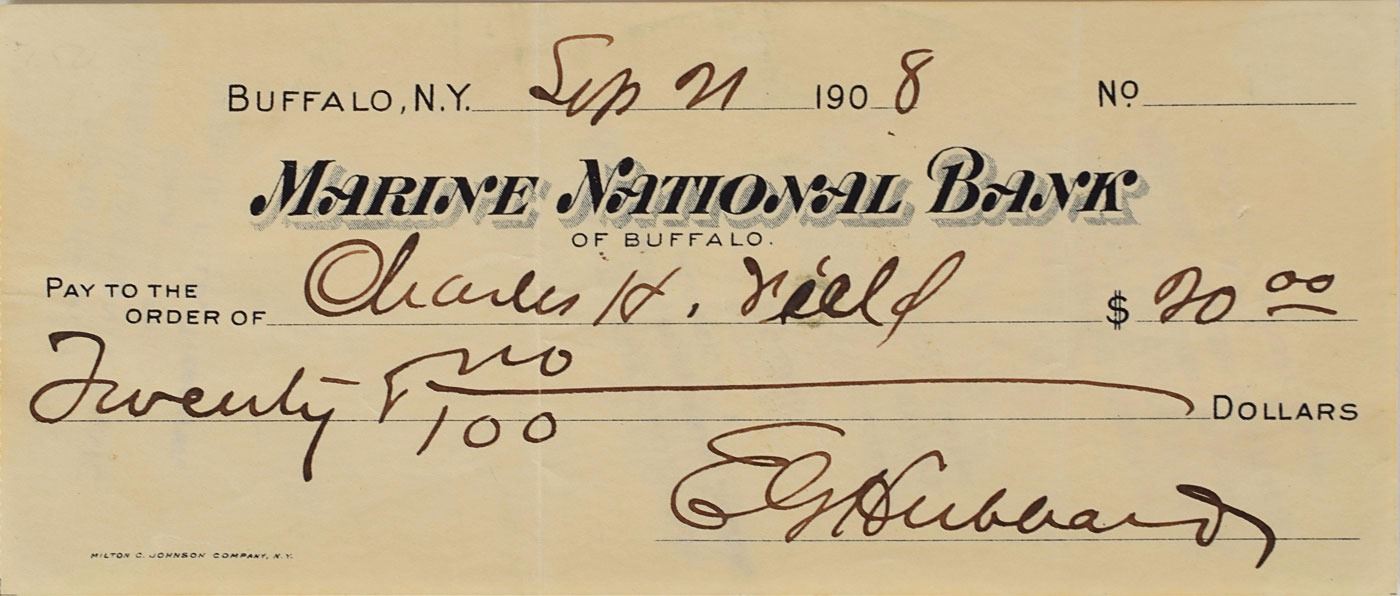 BUFFALO, N.Y. Sep 21 1908 No.
MARINE NATIONAL BANK
OF BUFFALO.
PAY TO THE
ORDER OF Charles H. $ 20 00
Twenty & no/100 DOLLARS
EG Hubbard
MILTON C. JOHNSON COMPANY, N.Y.